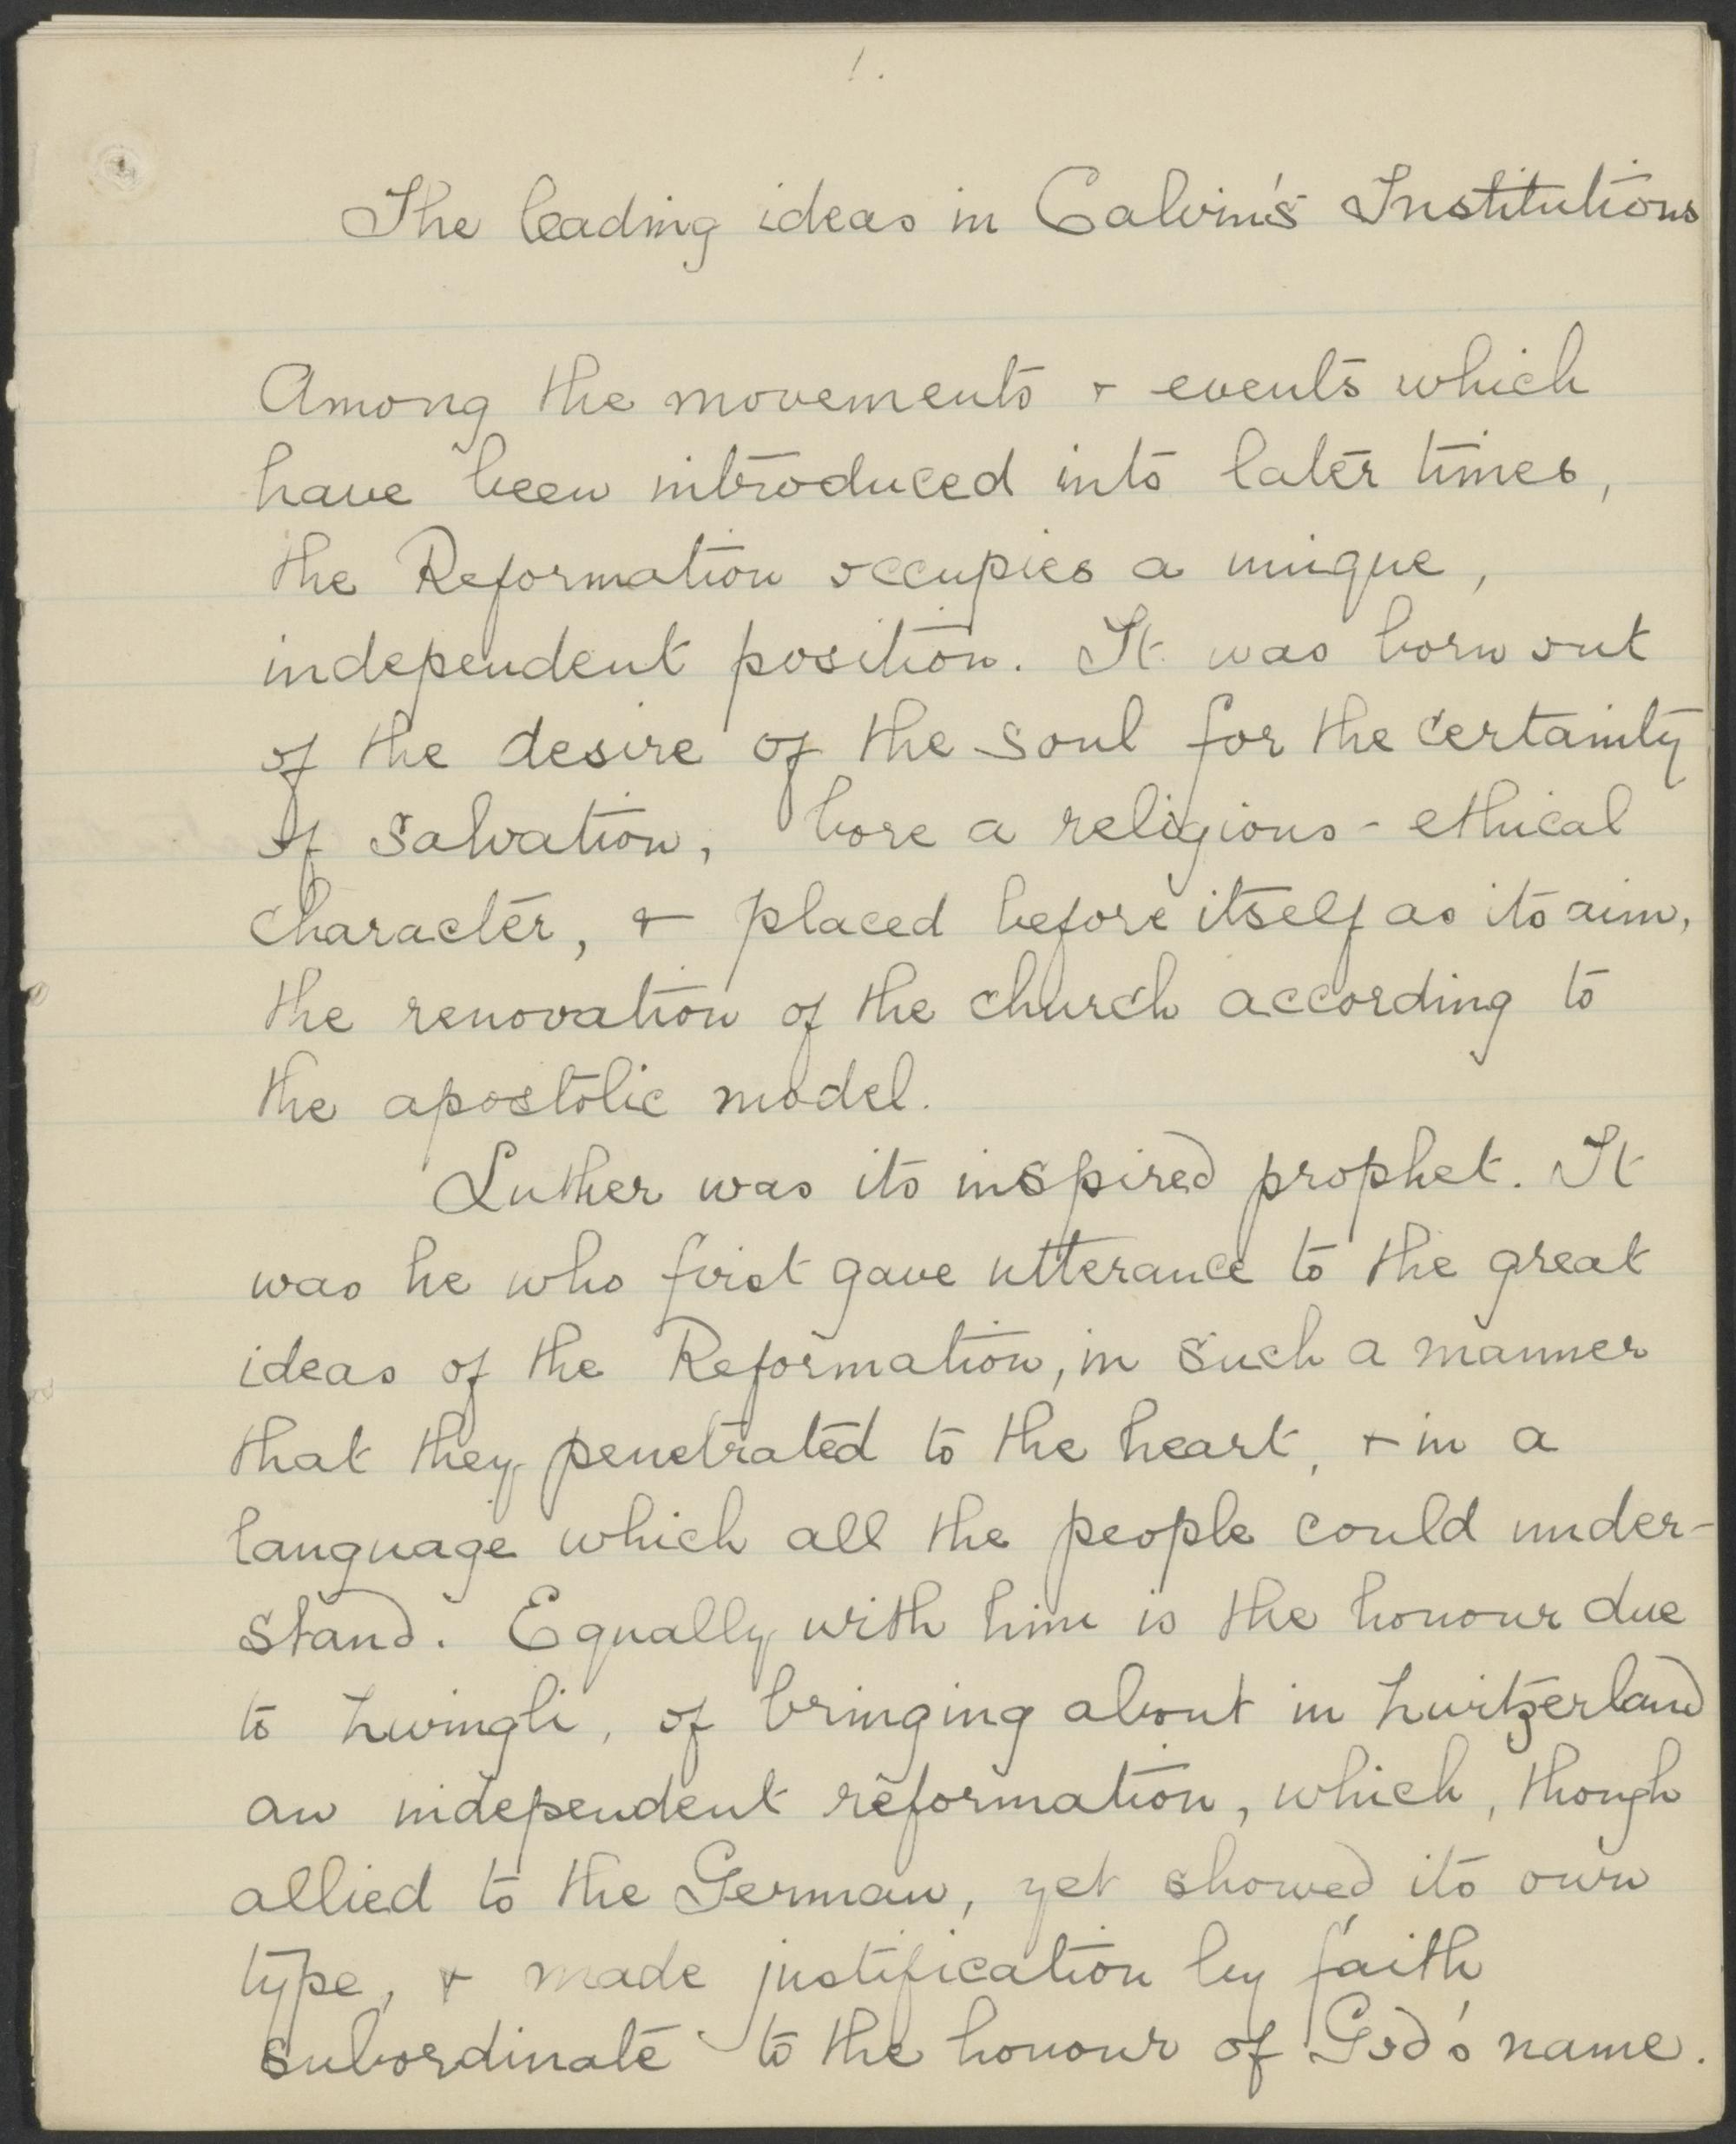 1.
The leading ideas in Calvin's Institutions
Among the movements & events which
have been introduced into later times,
the Reformation occupies a unique,
independent position. It was born out
of the desire of the soul for the certainty
of salvation, bore a religious - ethical
character, & placed before itself as its aim,
the renovation of the church according to
the apostolic model.
Luther was its inspired prophet. It
was he who first gave utterance to the great
ideas of the Reformation, in such a manner
that they penetrated to the heart, & in a
language which all the people could under-
stand. Equally with him is the honour due
to Zwingli, of bringing about in Zwitzerland
an independent reformation, which, though
allied to the German, yet showed its own
type, & made justification by faith
subordinate to the honour of God's name.